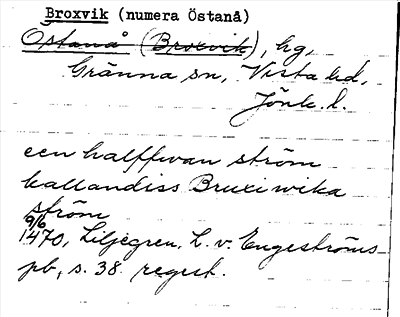 Broxvik (numera Östanå)
Östanå (Broxvik), hg,
Gränna sn, Vista hd,
Jönk. l.
een halffwan ström
kallandiss Bruxiwika
ström
9/6
1470, Liljegren, L. v. Engeströms
pb, s. 38. regest.